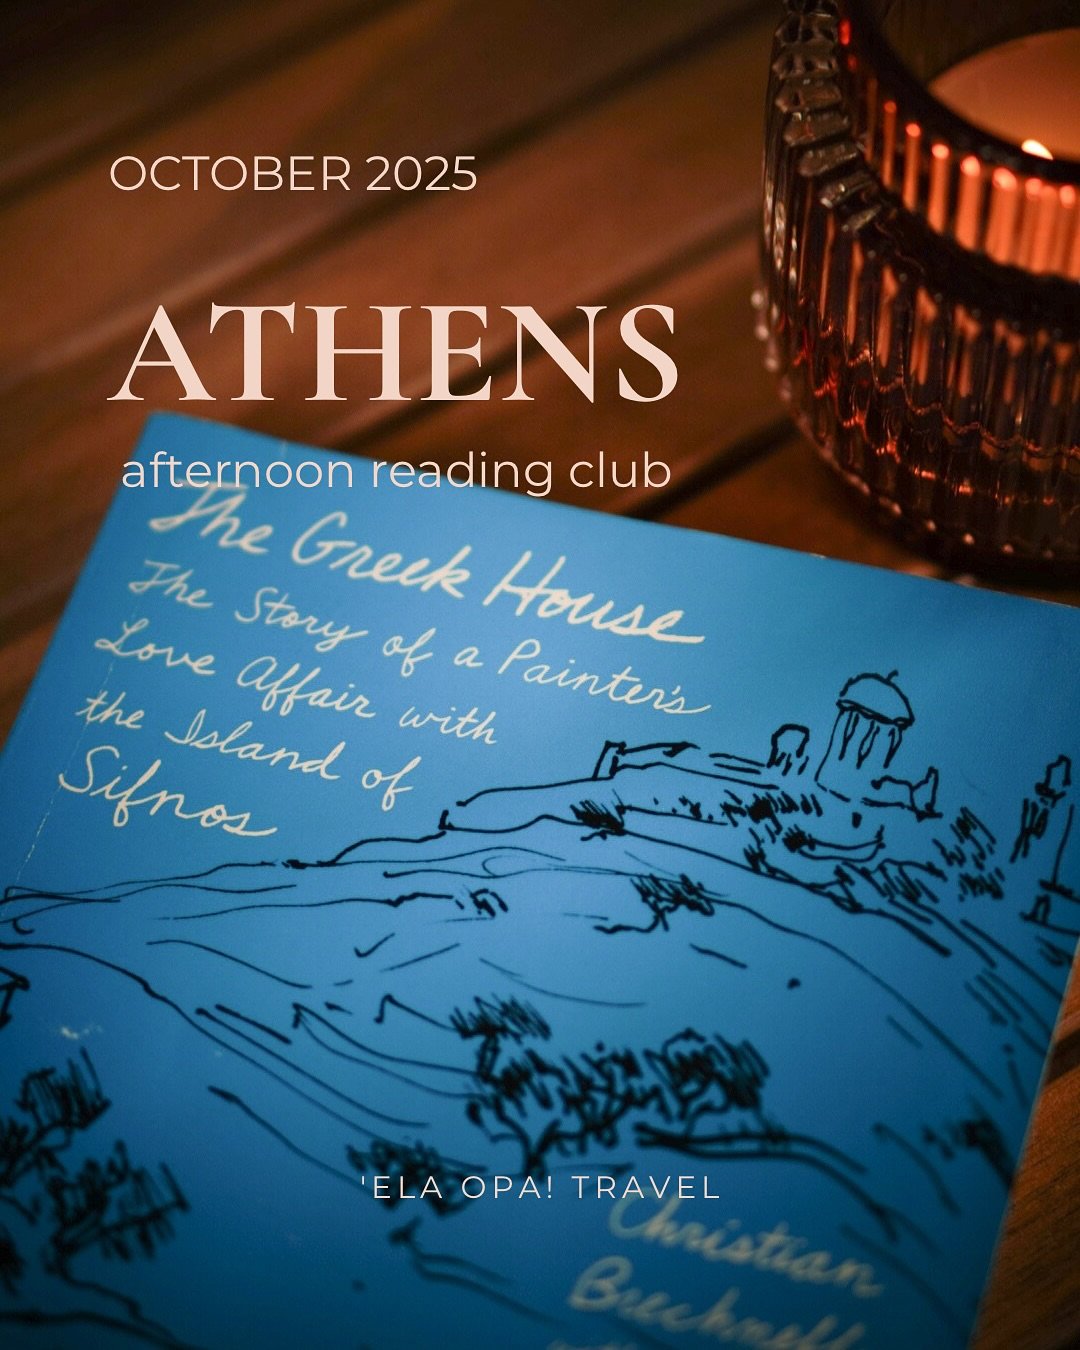 OCTOBER 2025
ATHENS
afternoon reading club
The Greek House
The Story of a Painter's
Love Affair with
the Island of
Sifnos
'ELA OPA! TRAVEL
Christian
Brechneff